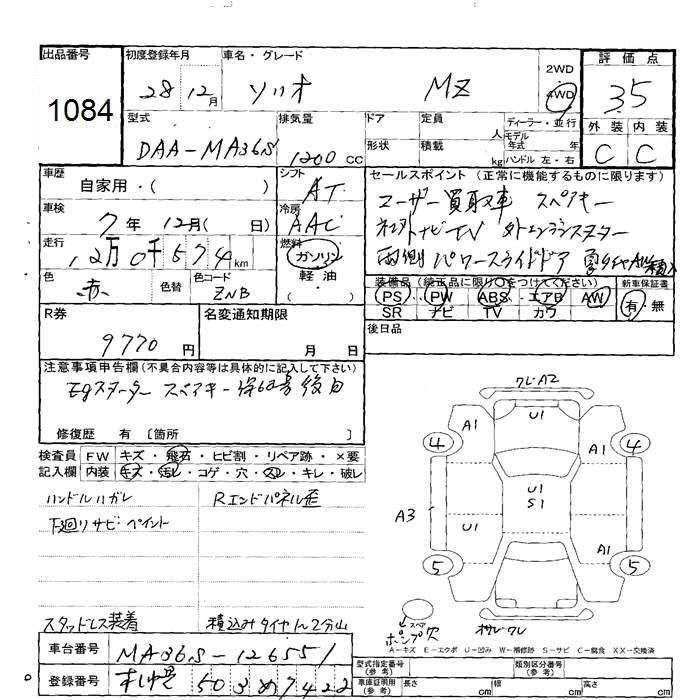 出品番号
1084
初度登録年月
28 12月
車名・グレード
ソリオ MZ
2WD
4WD
評価点
3.5
外装 内装
C C
型式
DAA-MA36S
排気量
1200 CC
ドア
形状
定員 人
積載 kg
ディーラー・並行
モデル年式 年
ハンドル 左・右
車歴
自家用・( )
シフト
AT
車検
7年 12月( 日)
冷房
AAC
走行
12万0千574km
燃料
ガソリン
軽油
( )
色
赤
色替
色コード
ZNB
セールスポイント (正常に機能するものに限ります)
ユーザー買取車 スペアキー
ナビTV
両側パワースライドドア
装備品 (純正品に限り○をつけてください)
新車保証書
PS PW ABS エアB AW
有 無
SR ナビ TV カワ
R券
9770円
名変通知期限
月 日
後日品
注意事項申告欄 (不具合内容等は具体的に記入して下さい)
Egスターター スペアキー 後日
修復歴 有 〔箇所 〕
検査員 FW キズ・飛石・ヒビ割・リペア跡・×要
記入欄 内装 キズ・汚レ・コゲ・穴・スレ・キレ・破レ
ハンドルハガレ
Rエンドパネル歪
下廻りサビ・ペイント
スタッドレス装着
積込みタイヤ
ワレA2
U1
A1
A1
4
4
U1
S1
A3
U1
A1
5
5
スペア
ポンプ穴
ワレ
A-キズ E-エクボ U-凹み W-補修跡 S-サビ C-腐食 XX-交換済
車台番号
MA36S-126551
登録番号
503 め 7422
型式指定番号
(参考)
類別区分番号
(参考)
車庫証明用
(参考)
長さ cm
幅 cm
高さ cm